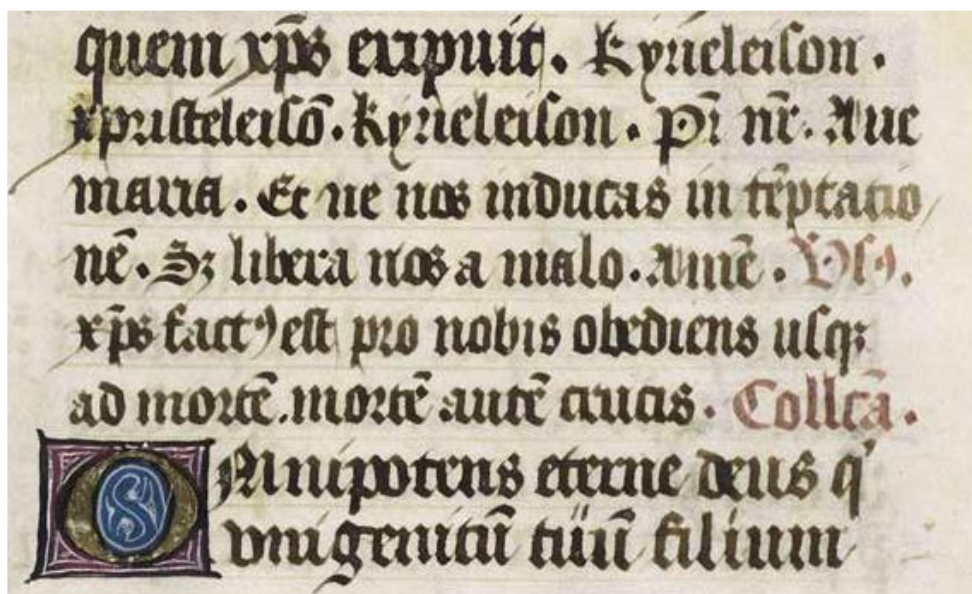 quem xp̄s eripuit. Kyrieleison.
xpristeleisō. kyrieleison. Pr̄ nr̄. Aue
maria. Et ne nos inducas in tēptatio
nē. Sꝫ libera nos a malo. Amē. Vsꝰ.
xp̄s factꝰ est pro nobis obediens usqꝫ
ad mortē. mortē autē crucis. Collc̄a.
Omnipotens eterne deus q'
vnigenitū tuū filium